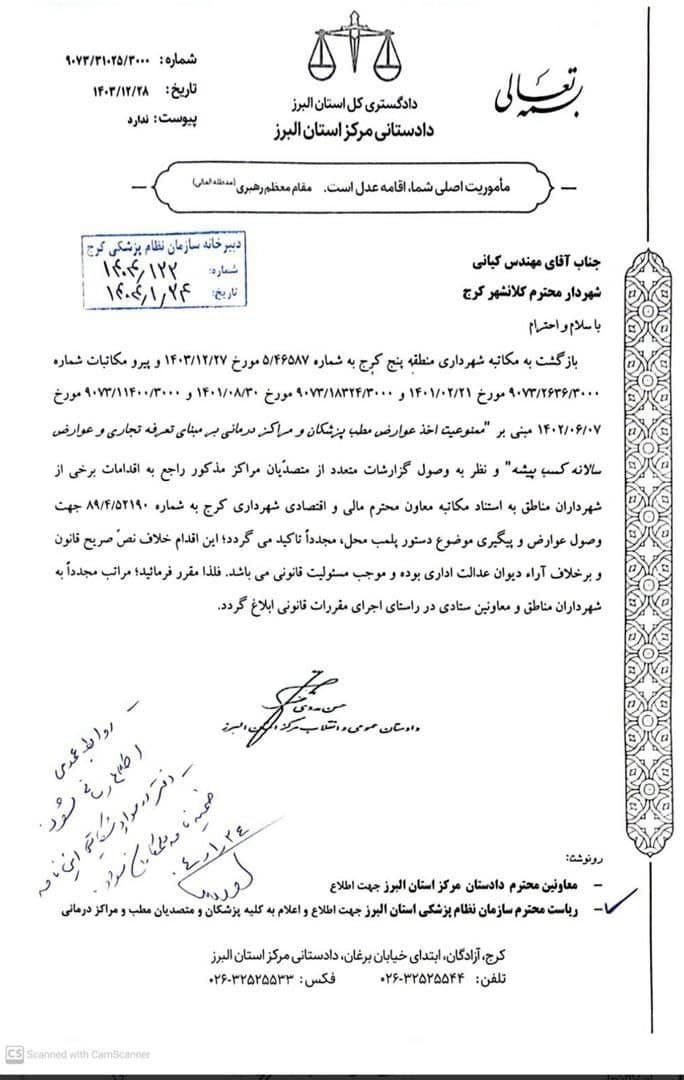 بسمه تعالی
دادگستری کل استان البرز
دادستانی مرکز استان البرز
شماره: ۹۰۷۳/۳۱۰۲۵/۳۰۰۰
تاریخ: ۱۴۰۳/۱۲/۲۸
پیوست: ندارد
مأموریت اصلی شما، اقامه عدل است. مقام معظم رهبری (مدظله العالی)
دبیرخانه سازمان نظام پزشکی کرج
شماره: ۱۴۰۴/۱۲۲
تاریخ: ۱۴۰۴/۱/۲۴
جناب آقای مهندس کیانی
شهردار محترم کلانشهر کرج
با سلام و احترام
بازگشت به مکاتبه شهرداری منطقه پنج کرج به شماره ۵/۴۶۵۸۷ مورخ ۱۴۰۳/۱۲/۲۷ و پیرو مکاتبات شماره
۹۰۷۳/۲۶۳۶/۳۰۰۰ مورخ ۱۴۰۱/۰۲/۲۱ و ۹۰۷۳/۱۸۳۲۴/۳۰۰۰ مورخ ۱۴۰۱/۰۸/۳۰ و ۹۰۷۳/۱۱۴۰۰/۳۰۰۰ مورخ
۱۴۰۲/۰۶/۰۷ مبنی بر "ممنوعیت اخذ عوارض مطب پزشکان و مراکز درمانی بر مبنای تعرفه تجاری و عوارض
سالانه کسب پیشه" و نظر به وصول گزارشات متعدد از متصدّیان مراکز مذکور راجع به اقدامات برخی از
شهرداران مناطق به استناد مکاتبه معاون محترم مالی و اقتصادی شهرداری کرج به شماره ۸۹/۴/۵۲۱۹۰ جهت
وصول عوارض و پیگیری موضوع دستور پلمب محل، مجدداً تاکید می گردد؛ این اقدام خلاف نصّ صریح قانون
و برخلاف آراء دیوان عدالت اداری بوده و موجب مسئولیت قانونی می باشد. فلذا مقرر فرمائید؛ مراتب مجدداً به
شهرداران مناطق و معاونین ستادی در راستای اجرای مقررات قانونی ابلاغ گردد.
دادستان عمومی و انقلاب مرکز استان البرز
– روابط عمومی
اطلاع رسانی شود.
– دفتر در موارد شکایتی این نامه
ضمیمه نامه
۰۴/۱/۲۴
رونوشت:
– معاونین محترم دادستان مرکز استان البرز جهت اطلاع
– ریاست محترم سازمان نظام پزشکی استان البرز جهت اطلاع و اعلام به کلیه پزشکان و متصدیان مطب و مراکز درمانی
کرج، آزادگان، ابتدای خیابان برغان، دادستانی مرکز استان البرز
تلفن: ۰۲۶-۳۲۵۲۵۵۴۴ فکس: ۰۲۶-۳۲۵۲۵۵۳۳
CS Scanned with CamScanner